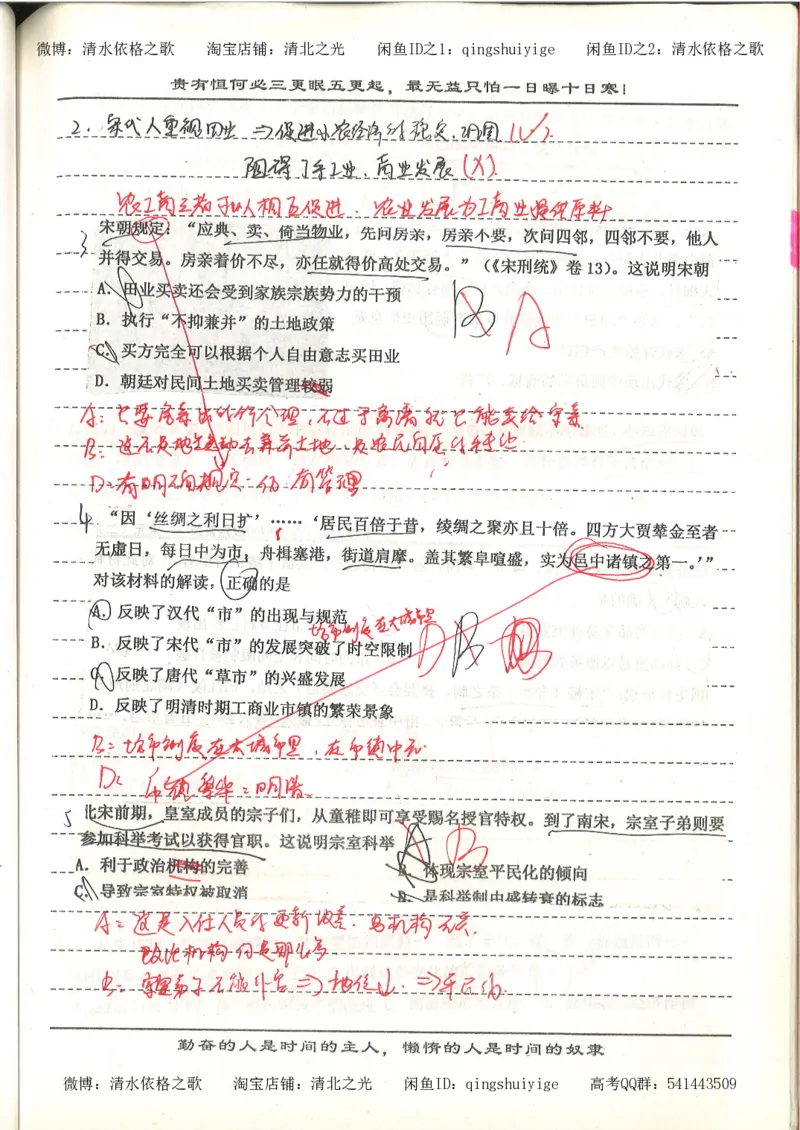 微博：清水依格之歌 淘宝店铺：清北之光 闲鱼ID之1：qingshuiyige 闲鱼ID之2：清水依格之歌
贵有恒何必三更眠五更起，最无益只怕一日曝十日寒！
2. 宋代人重视田业 ⇒促进小农经济的稳定、巩固(√).
阻碍了手工业、商业发展(X).
农工商三者可以相互促进. 农业发展为工商业提供原料
3 宋朝规定：“应典、卖、倚当物业，先问房亲，房亲不要，次问四邻，四邻不要，他人
并得交易。房亲着价不尽，亦任就得价高处交易。”（《宋刑统》卷 13）。这说明宋朝
A、田业买卖还会受到家族宗族势力的干预
B．执行“不抑兼并”的土地政策
C．买方完全可以根据个人自由意志买田业
D．朝廷对民间土地买卖管理较弱
B A
A: 只要房亲出的价合理，不过于离离
B: 这不是地主主动去兼并土地
D: 有明确规定：仍有管理
4 “因‘丝绸之利日扩’……‘居民百倍于昔，绫绸之聚亦且十倍。四方大贾辇金至者
无虚日，每日中为市，舟楫塞港，街道肩摩。盖其繁阜喧盛，实为邑中诸镇之第一。’”
对该材料的解读，正确的是
A．反映了汉代“市”的出现与规范
坊市制度在大城里
B．反映了宋代“市”的发展突破了时空限制
D B
C．反映了唐代“草市”的兴盛发展
D．反映了明清时期工商业市镇的繁荣景象
B: 坊市制度在大城市里，在市镇中无
D: 市镇繁华：明清
5 北宋前期，皇室成员的宗子们，从童稚即可享受赐名授官特权。到了南宋，宗室子弟则要
参加科举考试以获得官职。这说明宗室科举
A B
A．利于政治机构的完善
B．体现宗室平民化的倾向
C．导致宗室特权被取消
D．是科举制由盛转衰的标志
A: 这是入仕人员的更新改变. 与机构无关.
政治机构仍是那么多
B: 宗室弟子不能 ⇒地位↓ ⇒平民化.
勤奋的人是时间的主人，懒惰的人是时间的奴隶
微博：清水依格之歌 淘宝店铺：清北之光 闲鱼ID：qingshuiyige 高考QQ群：541443509